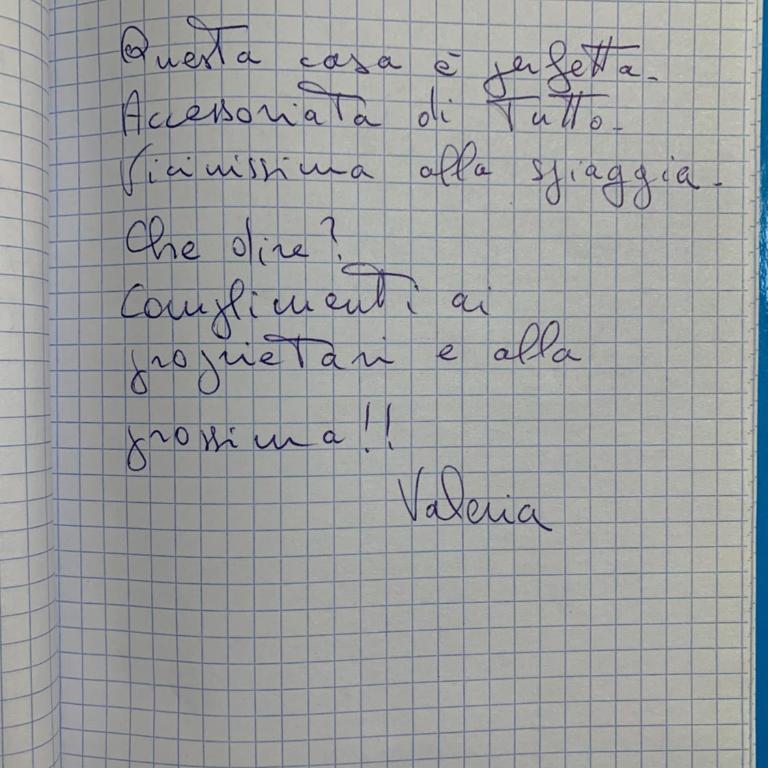 Questa casa è perfetta.
Accessoriata di tutto.
Vicinissima alla spiaggia.
Che dire?
Complimenti ai
proprietari e alla
prossima!!
Valeria